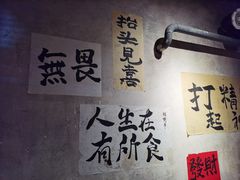 無畏
抬头見喜
人生在
有所食
打起
精神
發財